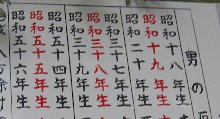 男の
昭和十八年生
昭和十九年生
昭和二十年生
昭和三十七年生
昭和三十八年生
昭和三十九年生
昭和五十四年生
昭和五十五年生
昭和五十六年生